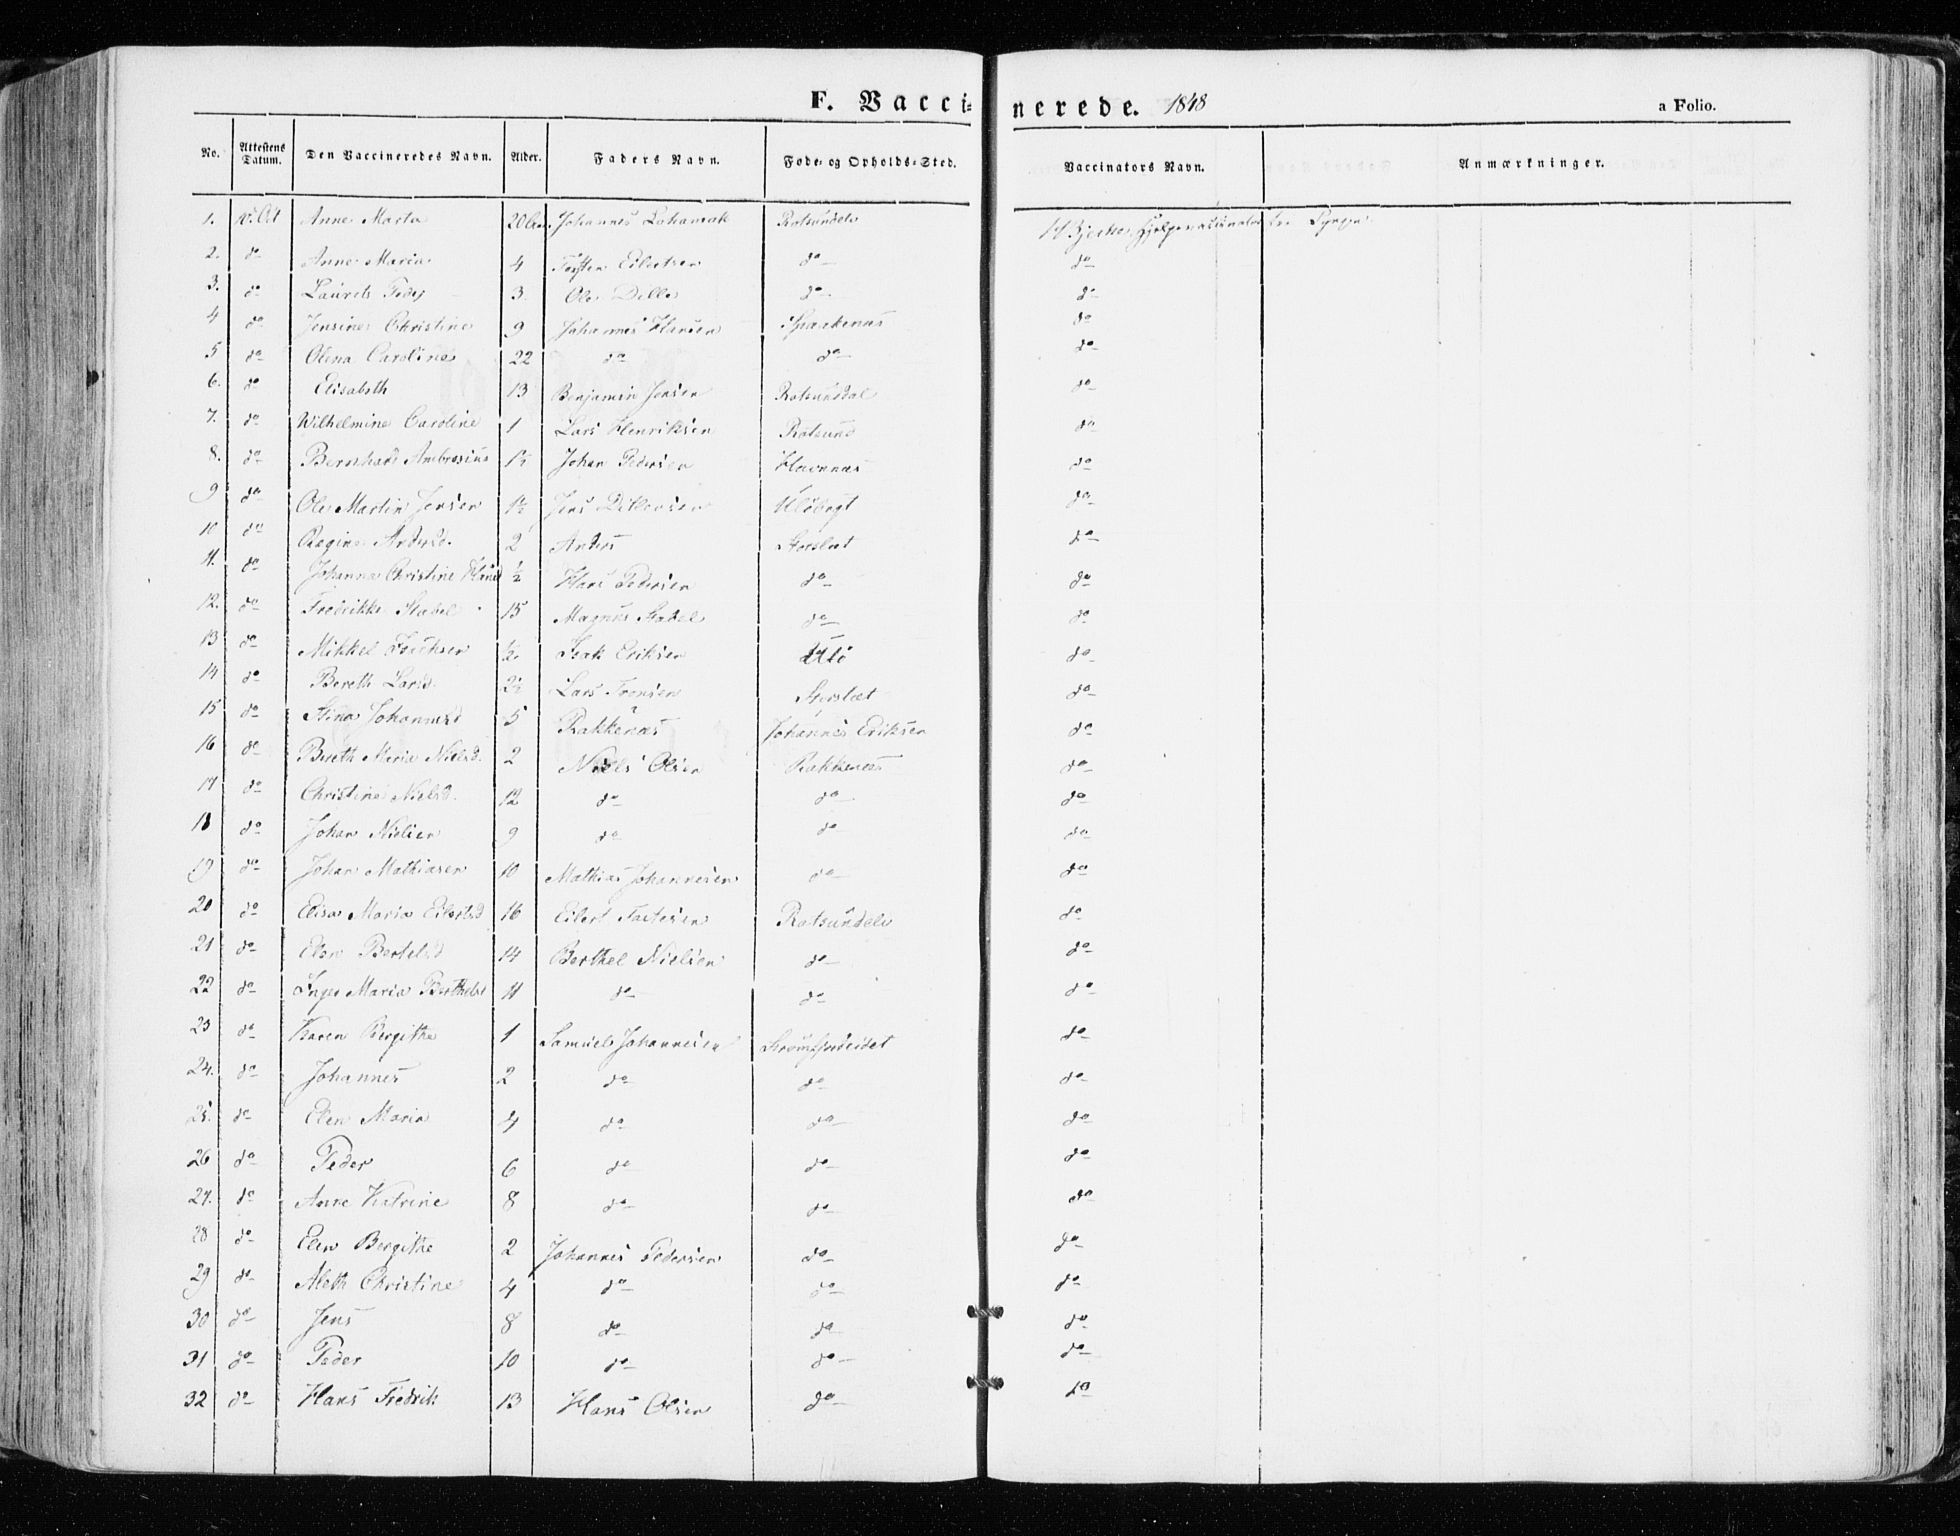 F. Vaccinerede. 1848 a Folio.
No. Attestens Datum. Den Vaccineredes Navn. Alder. Faders Navn. Føde- og Opholds-Sted. Vaccinators Navn. Anmærkninger.
1. Anne Marta 20 Johannes Rotsundelv
2. do Anne Maria 4 Eilertsen do do
3. do Laurits 3. Ole do do
4 do Jensine Christine 9 Johannes Hansen Spaakenæs do
5 do Olena Caroline 22 do do do
6. do Elisabeth 13 Benjamin Jensen Rotsunddal do
7. do Wilhelmine Caroline 1 Lars Henriksen Rotsund do
8. do Bernhard Ambrosius 1½ Johan Pedersen Havnnæs do
9 do Ole Martin Jensen 1½ Jens Ditlevsen Ulöbugt do
10 do Regine Andersd. 2 Anders Storslet do
11. do Johanna Christine Hansd ½ Hans Pedersen do do
12. do Fredrikke Stabel 15 Magnus Stabel do do
13 do Mikkel ½ Isak Eriksen Ulö do
14 do Bereth Larsd. 2½ Lars Storslet do
15 do Stina Johannesd 5 Rakkenæs Johannes Eriksen do
16 do Bereth Maria Nielsd. 2 Niels Olsen Rakkenæs do
17 do Christine Nielsd. 12 do do do
18 do Johan Nielsen 9 do do do
19 do Johan Mathiasen 10 Mathias Johannesen do do
20 do Elisa Maria Eilertsd 16 Eilert Rotsundelv do
21 do Elen Bertelsd 14 Berthel Nielsen do do
22 do Inger Maria Berthelsd 11 do do do
23 do Karen Bergithe 1 Samuel Johannesen Strømfjordeidet do
24. do Johannes 2 do do do
25. do Elen Maria 4 do do do
26 do Peder 6 do do do
27. do Anne Katrine 8 do do do
28 do Elen Bergithe 2 Johannes Pedersen do do
29 do Aleth Christine 4 do do do
30 do Jens 8 do do do
31 do Peder 10 do do do
32 do Hans Fredrik 13 Hans Olsen do do